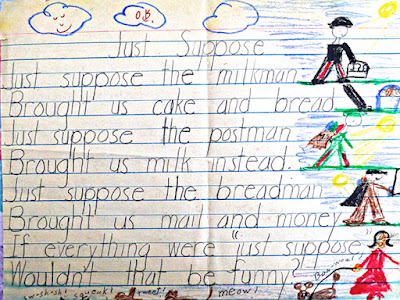 Just Suppose
Just suppose the milkman
Brought us cake and bread
Just suppose the postman
Brought us milk instead.
Just suppose the breadman
Brought us mail and money
If everything were "just suppose"
Wouldn't that be funny?
squeak!
tweet!
meow!